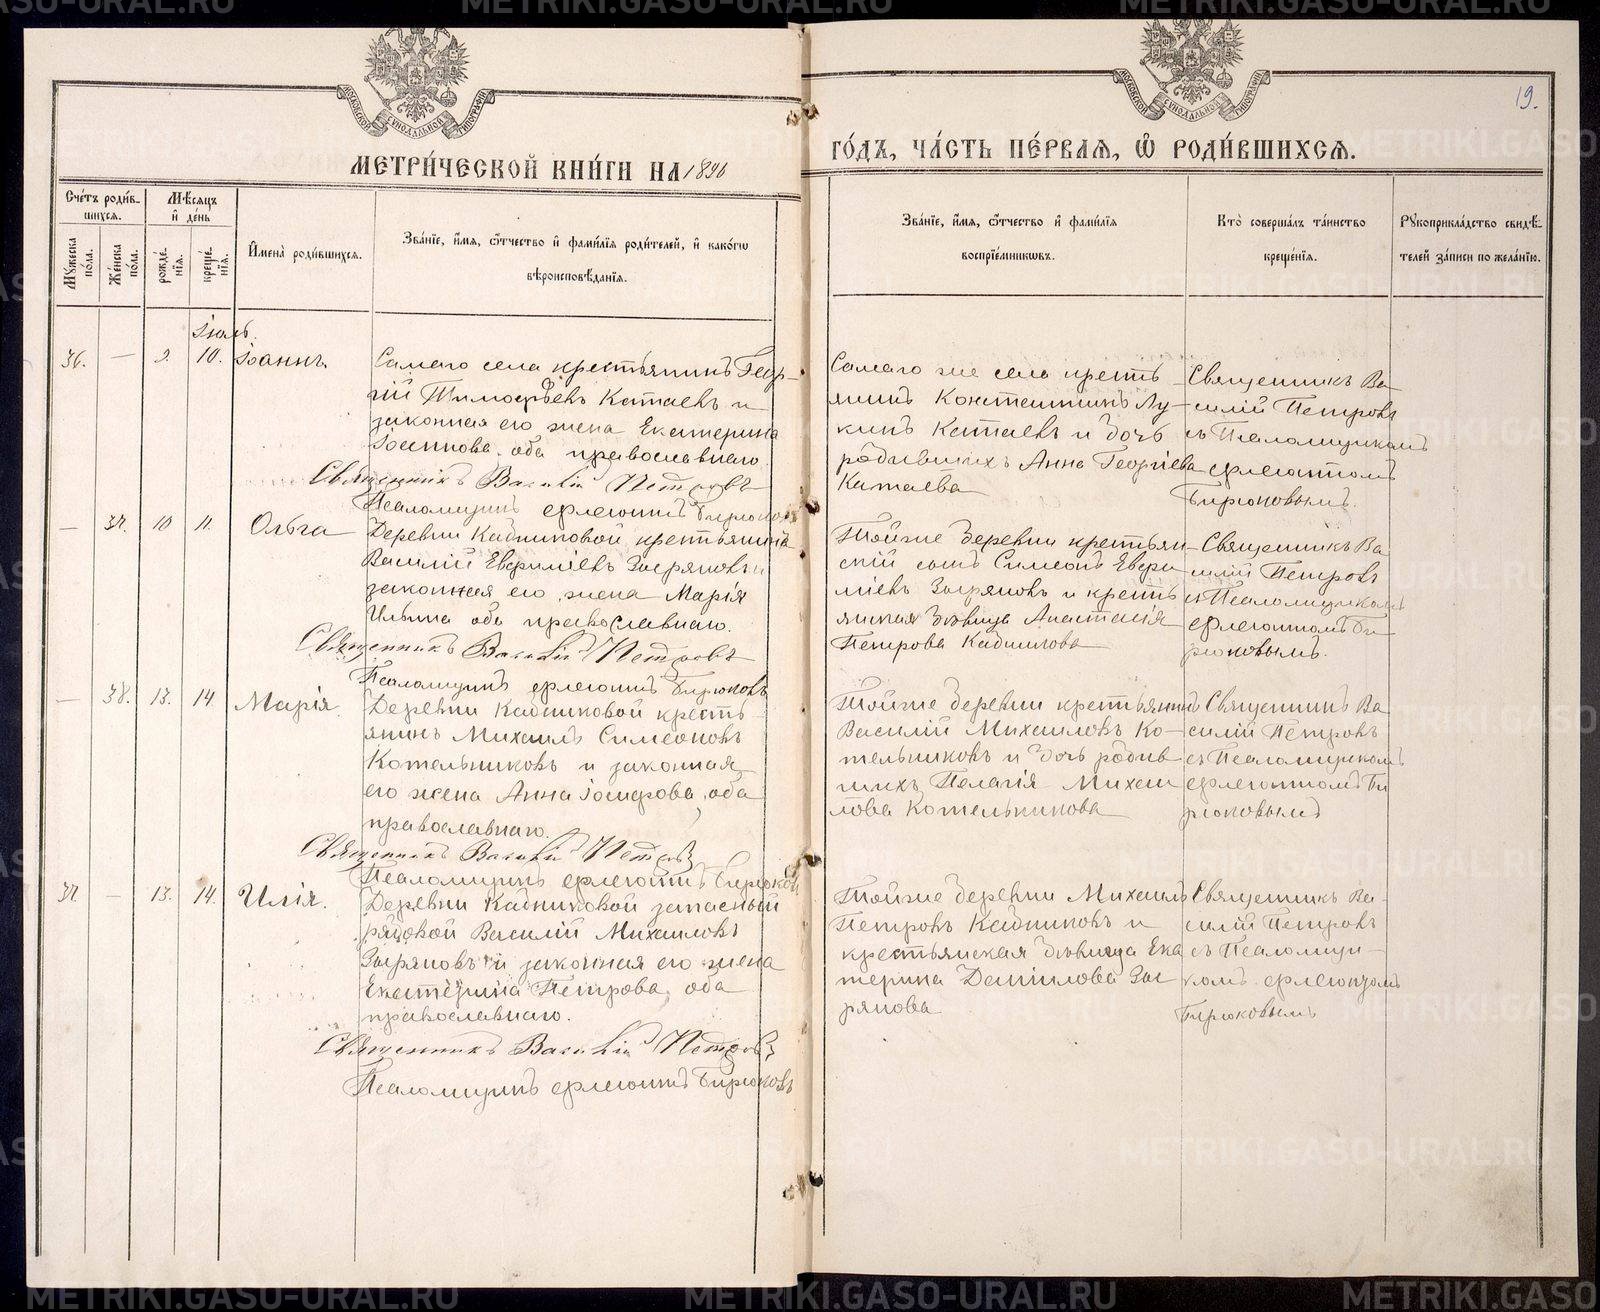 METRIKI.GASO-URAL.RU
МЕТРИ́ЧЕСКОЙ КНИ́ГИ НА 1896
ГО́ДЪ, ЧА́СТЬ ПЕ́РВАЯ, Ѡ РОДИ́ВШИХСЯ.
19.
Сче́тъ роди́в-
шихся.
Мѣ́сяцъ
и де́нь
Му́жеска по́ла.
Же́нска по́ла.
рожде́-
нія.
креще́-
нія.
Имена̀ роди́вшихся.
Зва́ніе, и́мя, о́тчество и фами́лія роди́телей, и како́гѡ
вѣроисповѣ́данія.
Зва́ніе, и́мя, о́тчество и фами́лія
воспріе́мниковъ.
Кто̀ соверша́лъ та́инство
креще́нія.
Рукоприкла́дство свидѣ́-
телей за́писи по жела́нію.
Іюль.
36. — 9. 10. Іоаннъ.
Самаго села крестьянинъ Геор-
гій Тимофѣевъ Катаевъ и
законная его жена Екатерина
Іоаннова, оба православнаго.
Священникъ Василій Петровъ
Псаломщикъ Флегонтъ Бирюковъ
Самаго же села кресть-
янинъ Константинъ Лу-
кинъ Катаевъ и дочь
родившихъ Анна Георгіева
Катаева
Священникъ Ва-
силій Петровъ
съ Псаломщикомъ
Флегонтомъ
Бирюковымъ.
— 37. 10 11. Ольга
Деревни Кадниковой крестьянинъ
Василій Евериліевъ Зыряновъ и
законная его жена Марія
Ильина оба православнаго.
Священникъ Василій Петровъ
Псаломщикъ Флегонтъ Бирюковъ
Тойже деревни крестьян-
скій сынъ Симеонъ Евери-
ліевъ Зыряновъ и кресть-
янская дѣвица Анастасія
Петрова Кадникова
Священникъ Ва-
силій Петровъ
съ Псаломщикомъ
Флегонтомъ Би-
рюковымъ.
— 38. 13. 14. Марія.
Деревни Кадниковой кресть-
янинъ Михаилъ Симеоновъ
Котельниковъ и законная
его жена Анна оба
православнаго.
Священникъ Василій Петровъ
Псаломщикъ Флегонтъ Бирюков
Тойже деревни крестьянинъ
Василій Михаиловъ Ко-
тельниковъ и дочь родив-
шихъ Пелагія Михаи-
лова Котельникова
Священникъ Ва-
силій Петровъ
съ Псаломщикомъ
Флегонтомъ Би-
рюковымъ
37. — 13. 14. Илія.
Деревни Кадниковой запасный
рядовой Василій Михаиловъ
Зыряновъ и законная его жена
Екатерина Петрова, оба
православнаго.
Священникъ Василій Петровъ
Псаломщикъ Флегонтъ Бирюковъ
Тойже деревни Михаилъ
Петровъ Кадниковъ и
крестьянская дѣвица Ека-
терина Данилова Зы-
рянова
Священникъ Ва-
силій Петровъ
съ Псаломщи-
комъ Флегонтомъ
Бирюковымъ